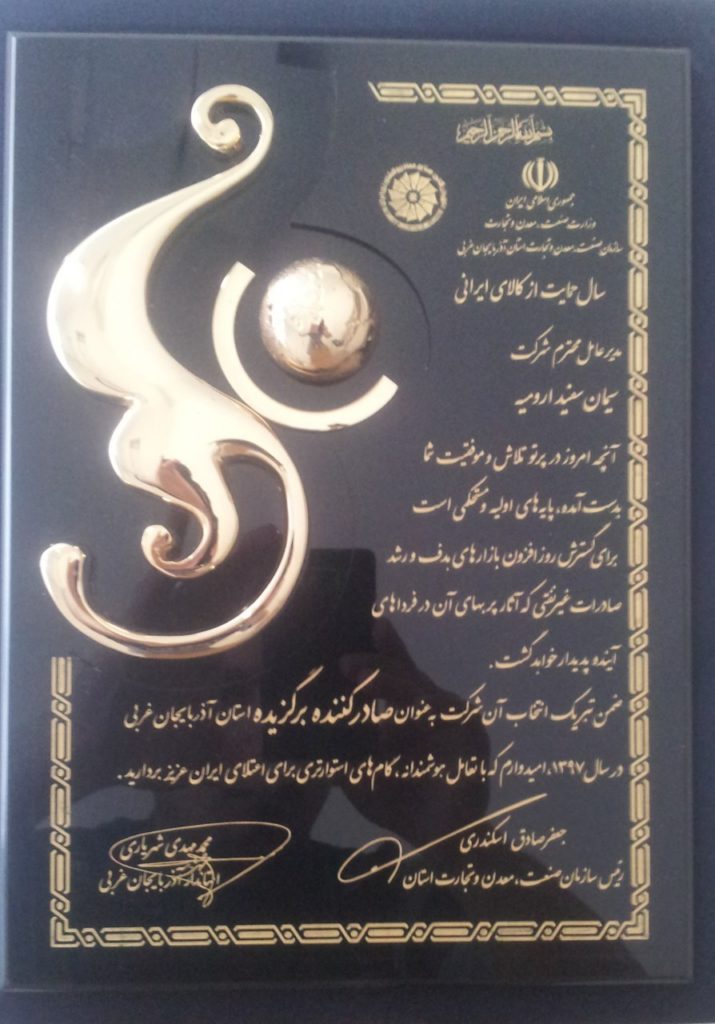 بسم الله الرحمن الرحیم
جمهوری اسلامی ایران
وزارت صنعت، معدن و تجارت
سازمان صنعت، معدن و تجارت استان آذربایجان غربی
سال حمایت از کالای ایرانی
مدیر عامل محترم شرکت
سیمان سفید ارومیه
آنچه امروز در پرتو تلاش و موفقیت شما
بدست آمده، پایه های اولیه و مستحکمی است
برای گسترش روز افزون بازارهای هدف و رشد
صادرات غیرنفتی که آثار پربهای آن در فرداهای
آینده پدیدار خواهد گشت.
ضمن تبریک انتخاب آن شرکت به عنوان صادرکننده برگزیده استان آذربایجان غربی
در سال ۱۳۹۷، امیدوارم که با تعامل هوشمندانه، گام های استوارتری برای اعتلای ایران عزیز بردارید.
جعفر صادق اسکندری
رئیس سازمان صنعت، معدن و تجارت استان
محمد مهدی شهریاری
استاندار آذربایجان غربی